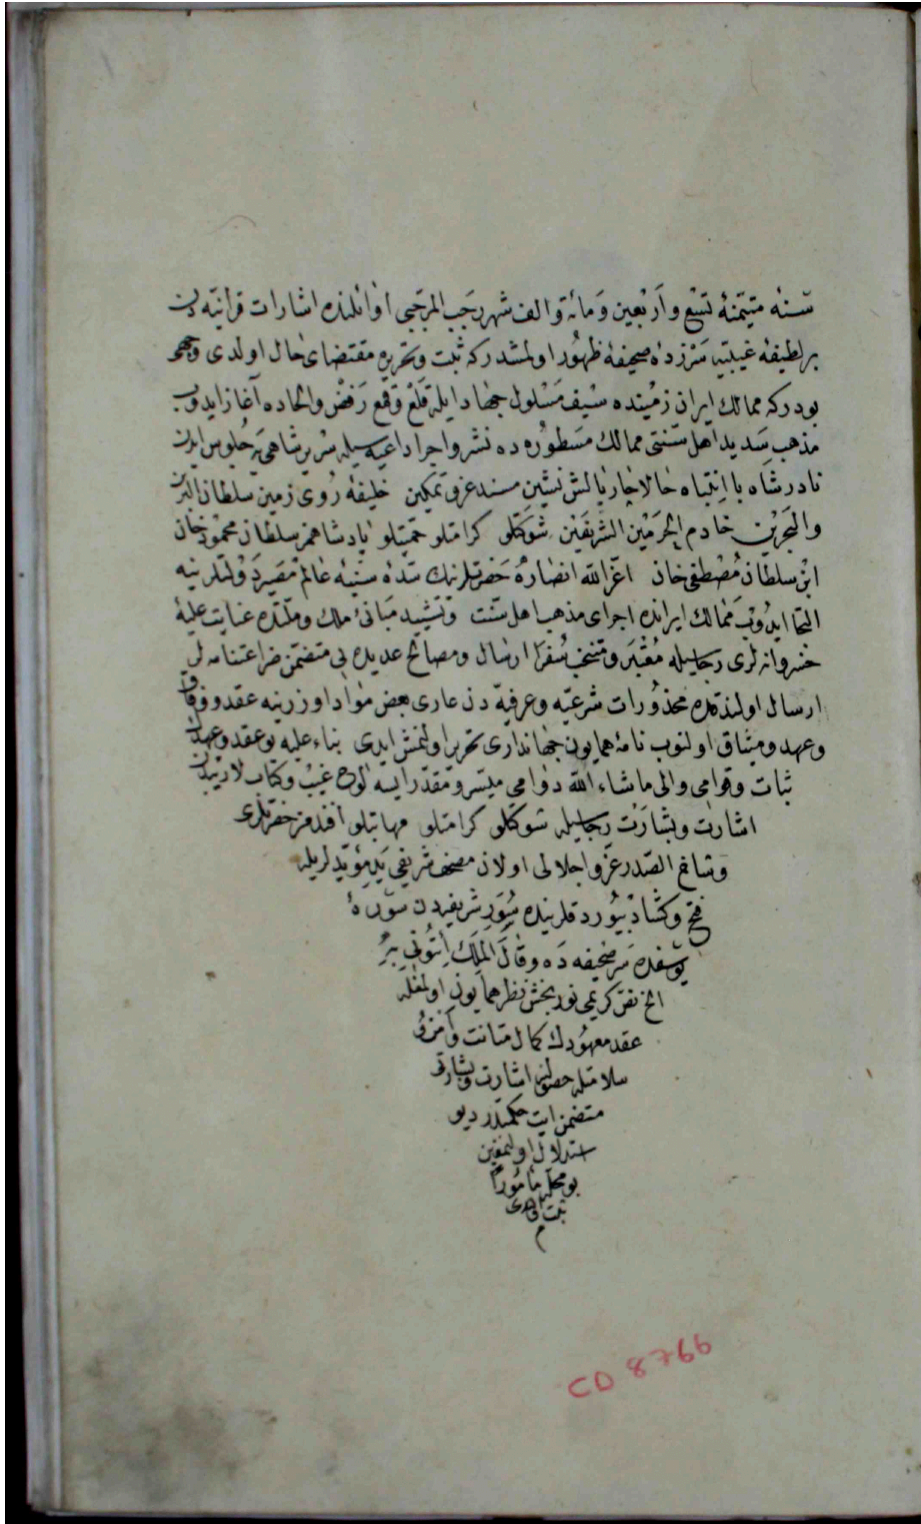 سنه متیمنهٔ تسع واربعین ومائة والف شهر رجب المرجبی اوائلنده اشارات قرآنیه دن
بر لطیفهٔ غیبیه سرزده صحیفهٔ ظهور اولمشدر که ثبت وتحریری مقتضای حال اولدی وجهی
بودر که ممالك ایران زمینده سیف مسلول جهاد ایله قلع وقمع رفض والحاده آغاز ایدوب
مذهب سدید اهل سنتی ممالك مسطوره ده نشر واجرا داعیه سیله سریر شاهی یه جلوس ایدن
نادر شاه با انتباه حالا چاربالش نشین مسند عز وتمکین خلیفهٔ روی زمین سلطان البرین
والبحرین خادم الحرمین الشریفین شوکتلو کرامتلو پادشاهمز سلطان محمود خان
ابن سلطان مصطفی خان اعز الله انصاره حضرتلرینك سدهٔ سنیهٔ عالم مصیر دولتلرینه
التجا ایدوب ممالك ایرانده اجرای مذهب اهل سنت وتشید مبانئ ملك وملتده عنایت علیهٔ
خسروانه لری رجاسیله معتبر ومنتخب سفرا ارسال ومصالح عدیده یی متضمن ضراعتنامه لر
ارسال اولندقده محذورات شرعیه وعرفیه دن عاری بعض مواد اوزرینه عقد ووفاق
وعهد ومیثاق اولنوب نامهٔ همایون جهانداری تحریر اولنمش ایدی بناء علیه بو عقد وعهدك
ثبات وقوامی والی ماشاء الله دوامی میسر ومقدر ایسه لوح غیب وکتاب لاریبدن
اشارت وبشارت رجاسیله شوکتلو کرامتلو مهابتلو افندمز حضرتلری
الصدر عز واجلالی اولان مصحف شریفی ید مؤیدلریله
فتح وکشاد بیوردقلرینده سور شریفه دن سورهٔ
یوسفده سر صحیفه ده وقال الملك ائتونی به
الخ نص کریمی نوربخش نظر همایون اولمغله
عقد معهودك کمال متانت
سلامتله حصولنی اشارت وبشارتی
متضمن آیت حکمتدر دیو
استدلال اولنمغین
بو محله مأمورا
ثبت اولندی
م
CD 8766